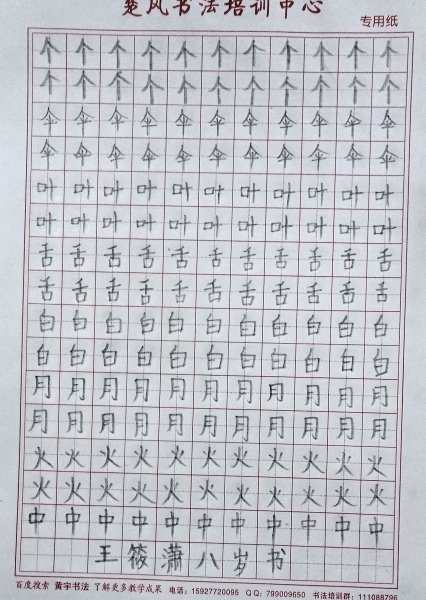 楚风书法培训中心
专用纸
个个个个个个个个个个个
个个个个个个个个个个个
伞伞伞伞伞伞伞伞伞伞伞
伞伞伞伞伞伞伞伞伞伞伞
叶叶叶叶叶叶叶叶叶叶叶
叶叶叶叶叶叶叶叶叶叶叶
舌舌舌舌舌舌舌舌舌舌舌
舌舌舌舌舌舌舌舌舌舌舌
白白白白白白白白白白白
白白白白白白白白白白白
月月月月月月月月月月月
月月月月月月月月月月月
火火火火火火火火火火火
火火火火火火火火火火火
中中中中中中中中中中中
王筱潇八岁书
百度搜索 黄宇书法 了解更多教学成果 电话：15927720095 QQ：799009650 书法培训群：111088796